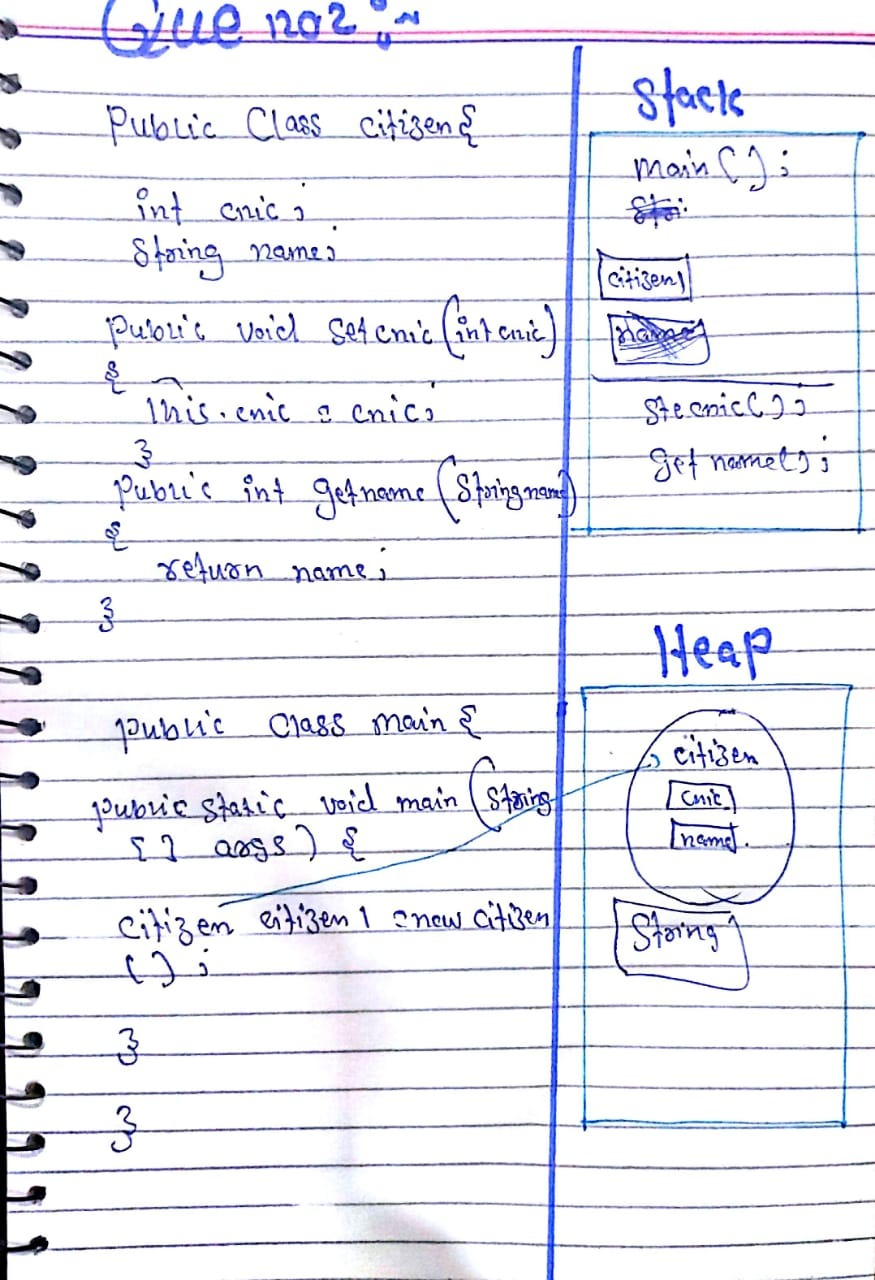 Que no2 :~
Public Class citizen {
int cnic ;
String name;
Public void setcnic (int cnic)
{
This.cnic = cnic;
}
Public int getname (String name)
{
return name;
}
public class main {
public static void main (String
[ ] args) {
citizen citizen1 = new citizen
( ) ;
}
}
Stack
main ( ) ;
citizen1
stecnic( ) ;
get name( ) ;
Heap
citizen
cnic
name
String